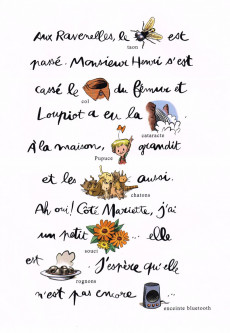 Aux Ravenelles, le est
taon
passé. Monsieur Henri s'est
cassé le du fémur et
col
Loupiot a eu la
cataracte
À la maison, grandit
Pupuce
et les aussi.
chatons
Ah oui! Côté Mariette, j'ai
un petit elle
souci
est . J'espère qu'elle
rognons
n'est pas encore ...
enceinte bluetooth